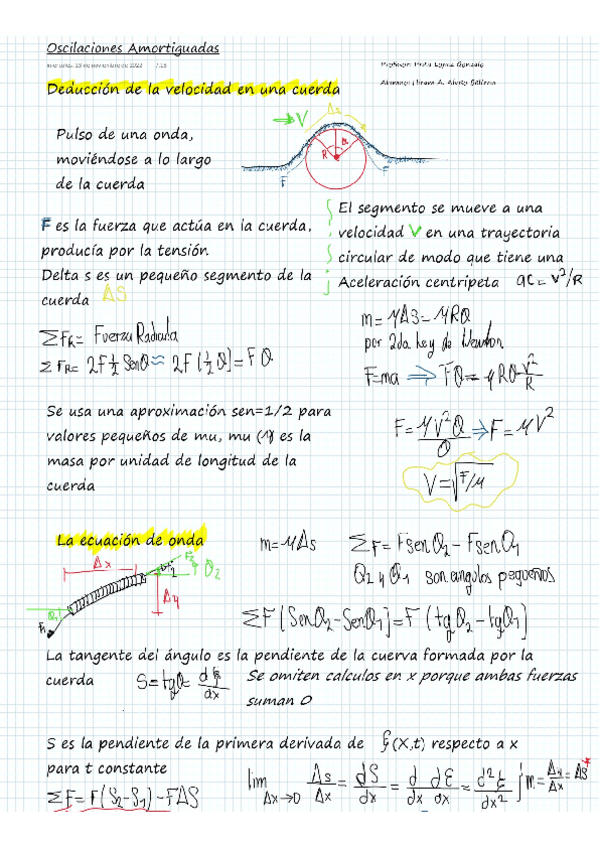 Oscilaciones Amortiguadas
miércoles, 23 de noviembre de 2022
Deducción de la velocidad en una cuerda
Δs
V
Pulso de una onda,
moviéndose a lo largo
de la cuerda
R
F F
F es la fuerza que actúa en la cuerda,
producía por la tensión.
Delta s es un pequeño segmento de la
cuerda ΔS
El segmento se mueve a una
velocidad V en una trayectoria
circular de modo que tiene una
Aceleración centripeta ac = V²/R
ΣFR = Fuerza Radial
ΣFR = 2F ½ Senθ ≈ 2F(½θ) = Fθ
m = μΔS = μRθ
por 2da Ley de Newton
F=ma ⇒ Fθ = μRθ V²/R
Se usa una aproximación sen=1/2 para
valores pequeños de mu, mu (μ) es la
masa por unidad de longitud de la
cuerda
F = μV²θ/θ ⇒ F = μV²
V = √F/μ
La ecuación de onda
Δx
θ2
Δy
θ1
m = μΔs
ΣF = Fsenθ2 - Fsenθ1
θ2 y θ1 son angulos pequeños
ΣF[Senθ2-Senθ1] = F(tgθ2 - tgθ1]
La tangente del ángulo es la pendiente de la cuerva formada por la
cuerda S = tgθ = dξ/dx
Se omiten calculos en x porque ambas fuerzas
suman 0
S es la pendiente de la primera derivada de ξ(X,t) respecto a x
para t constante
ΣF = F(S2-S1) - FΔS
lim Δx→0 Δs/Δx = dS/dx = d/dx dξ/dx = d²ξ/dx² ; m = Δy/Δx = ΔS*